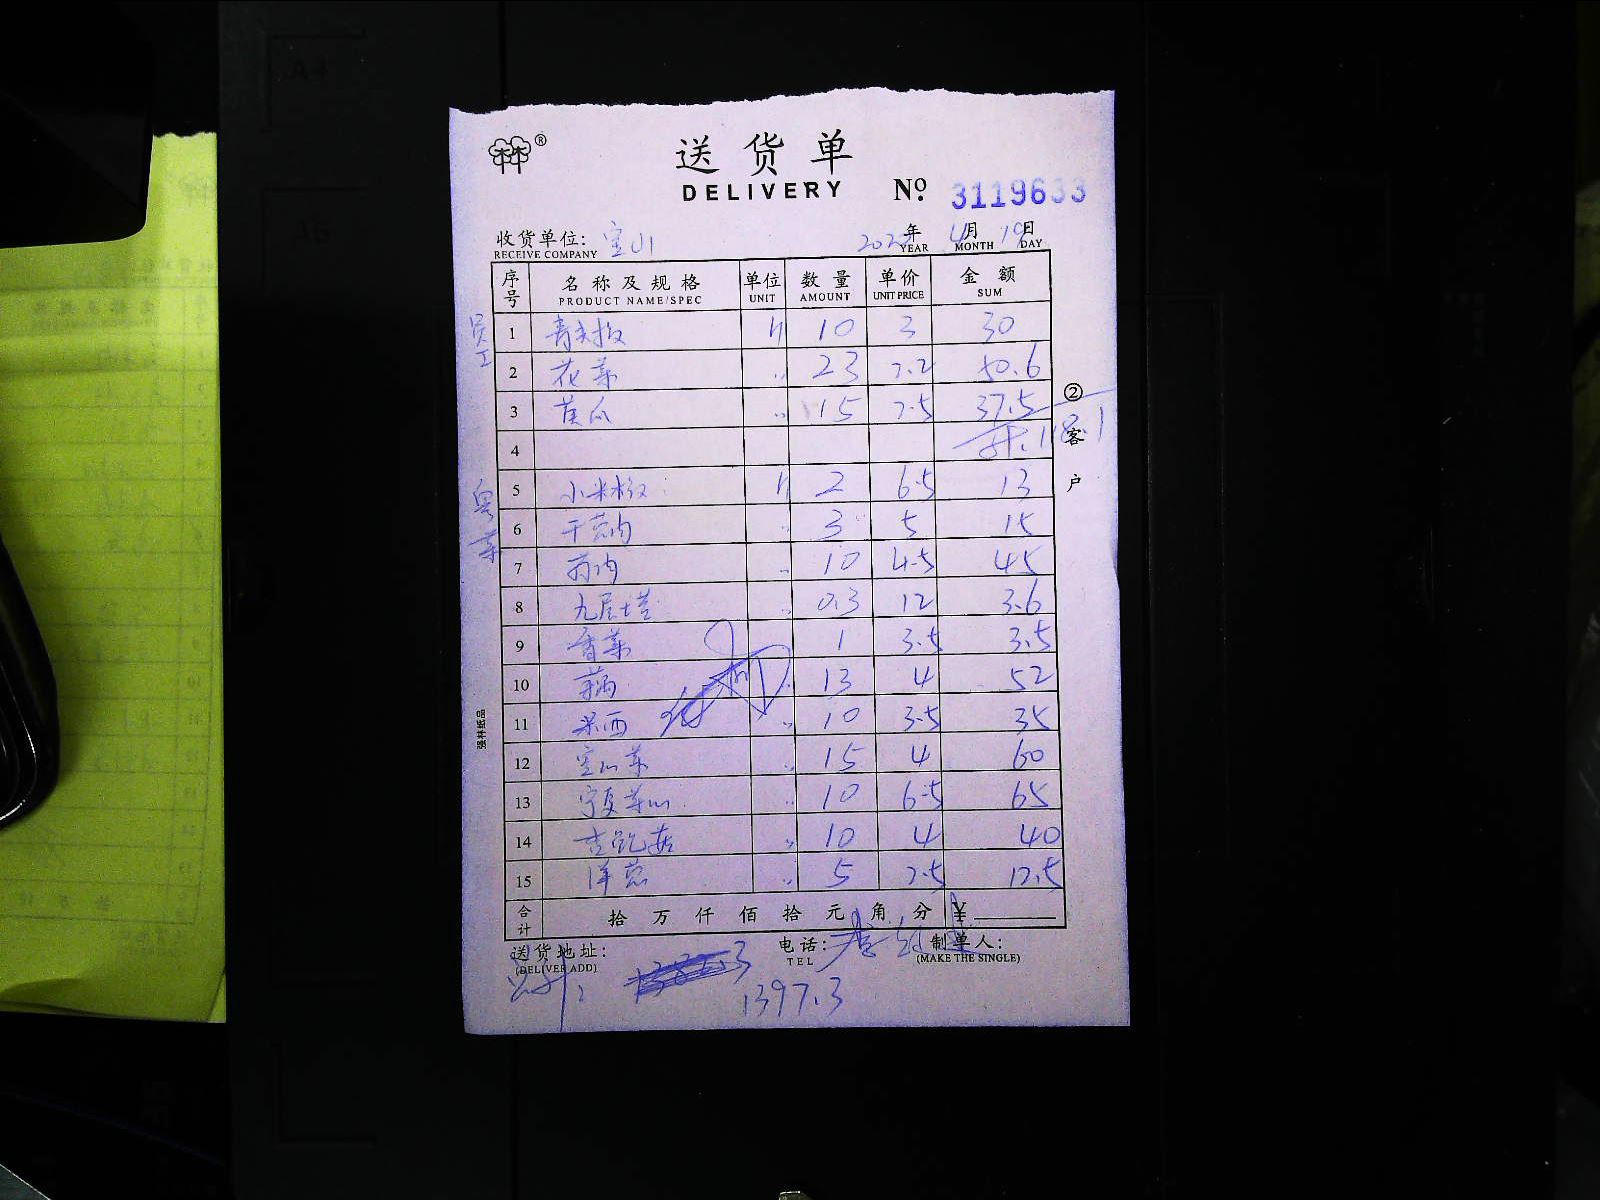 送货单
DELIVERY
№ 3119633
收货单位: 宝山 年 4月 19日
RECEIVE COMPANY YEAR MONTH DAY
序号 名称及规格 单位 数量 单价 金额
PRODUCT NAME/SPEC UNIT AMOUNT UNIT PRICE SUM
员工
1 青尖椒 斤 10 3 30
2 花菜 〃 23 2.2 50.6
3 黄瓜 〃 15 2.5 37.5
4 118.1
②客户
粤菜
5 小米椒 斤 2 6.5 13
6 干葱肉 〃 3 5 15
7 〃 10 4.5 45
8 九层塔 〃 0.3 12 3.6
9 香菜 1 3.5 3.5
10 13 4 52
11 〃 10 3.5 35
12 空心菜 〃 15 4 60
13 宁夏菜心 〃 10 6.5 65
14 〃 10 4 40
15 洋葱 〃 5 2.5 12.5
强林纸品
合计 拾 万 仟 佰 拾 元 角 分 ¥
送货地址: 电话: 制单人:
(DELIVER ADD) TEL (MAKE THE SINGLE)
1397.3